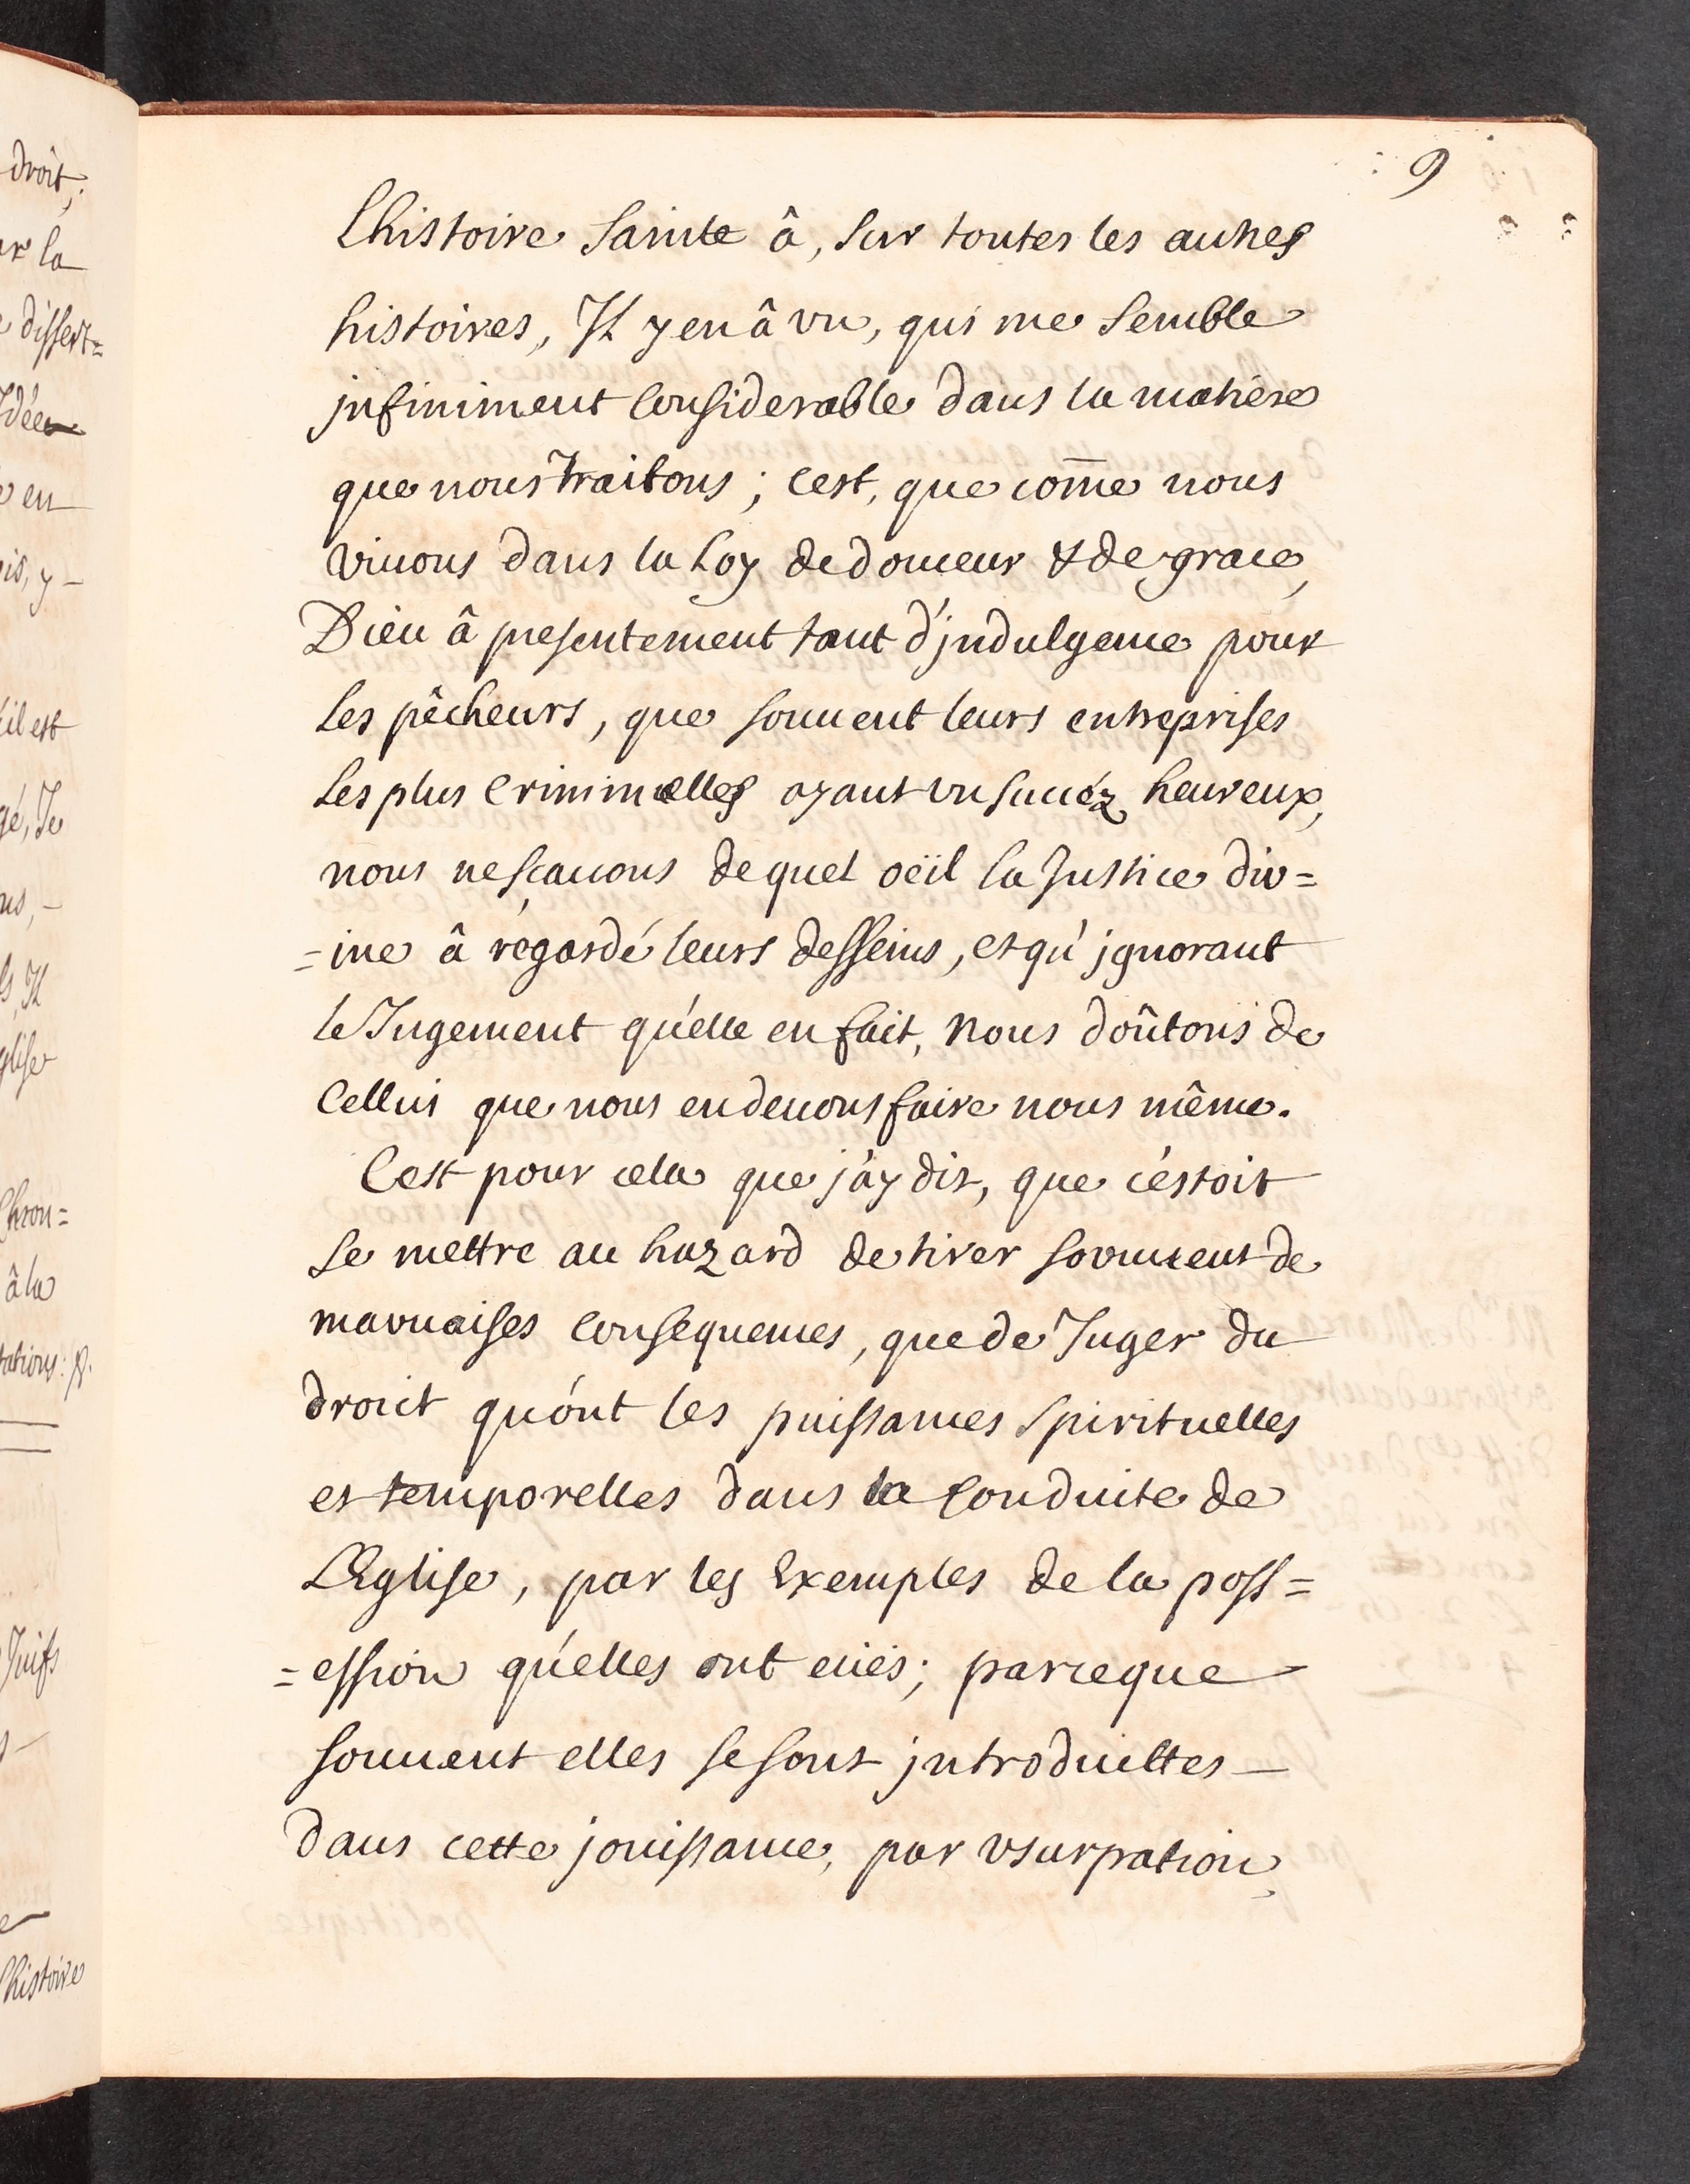 9
l'histoire Sainte â, Sur toutes les autres
histoires, Il y en â vn, qui me Semble
jnfiniment Considerable dans la matiére
que nous traitons; cest, que com̄e nous
viuons dans la Loy de douceur & de grace,
Dieu â presentement tant d'jndulgence pour
Les pêcheurs, que souuent leurs entreprises
Les plus Criminelles ayant vn succéz heureux,
nous ne scauons de quel oëil la Justice div=
=ine â régardé leurs desseins, et qu'jgnorant
le Jugement qu'elle en fait, nous doûtons de
Celluis que nous en deuons faire nous même.
C'est pour cela que j'ay dit, que c'estoit
Se mettre au hazard de tirer souuent de
mauuaises Consequences, que de Juger du
droict qu'ont les puissances Spirituelles
et temporelles dans la Conduite de
L'Eglise, par les Exemples de la poss=
=ession qu'elles ont eües; parceque
souuent elles se sont jntroduittes —
dans cette jouissance, par vsurpation,
droit;
la
dissert=
Idée
en
y —
il est
Je
Il
Chron=
â la
Juifs
l'histoire